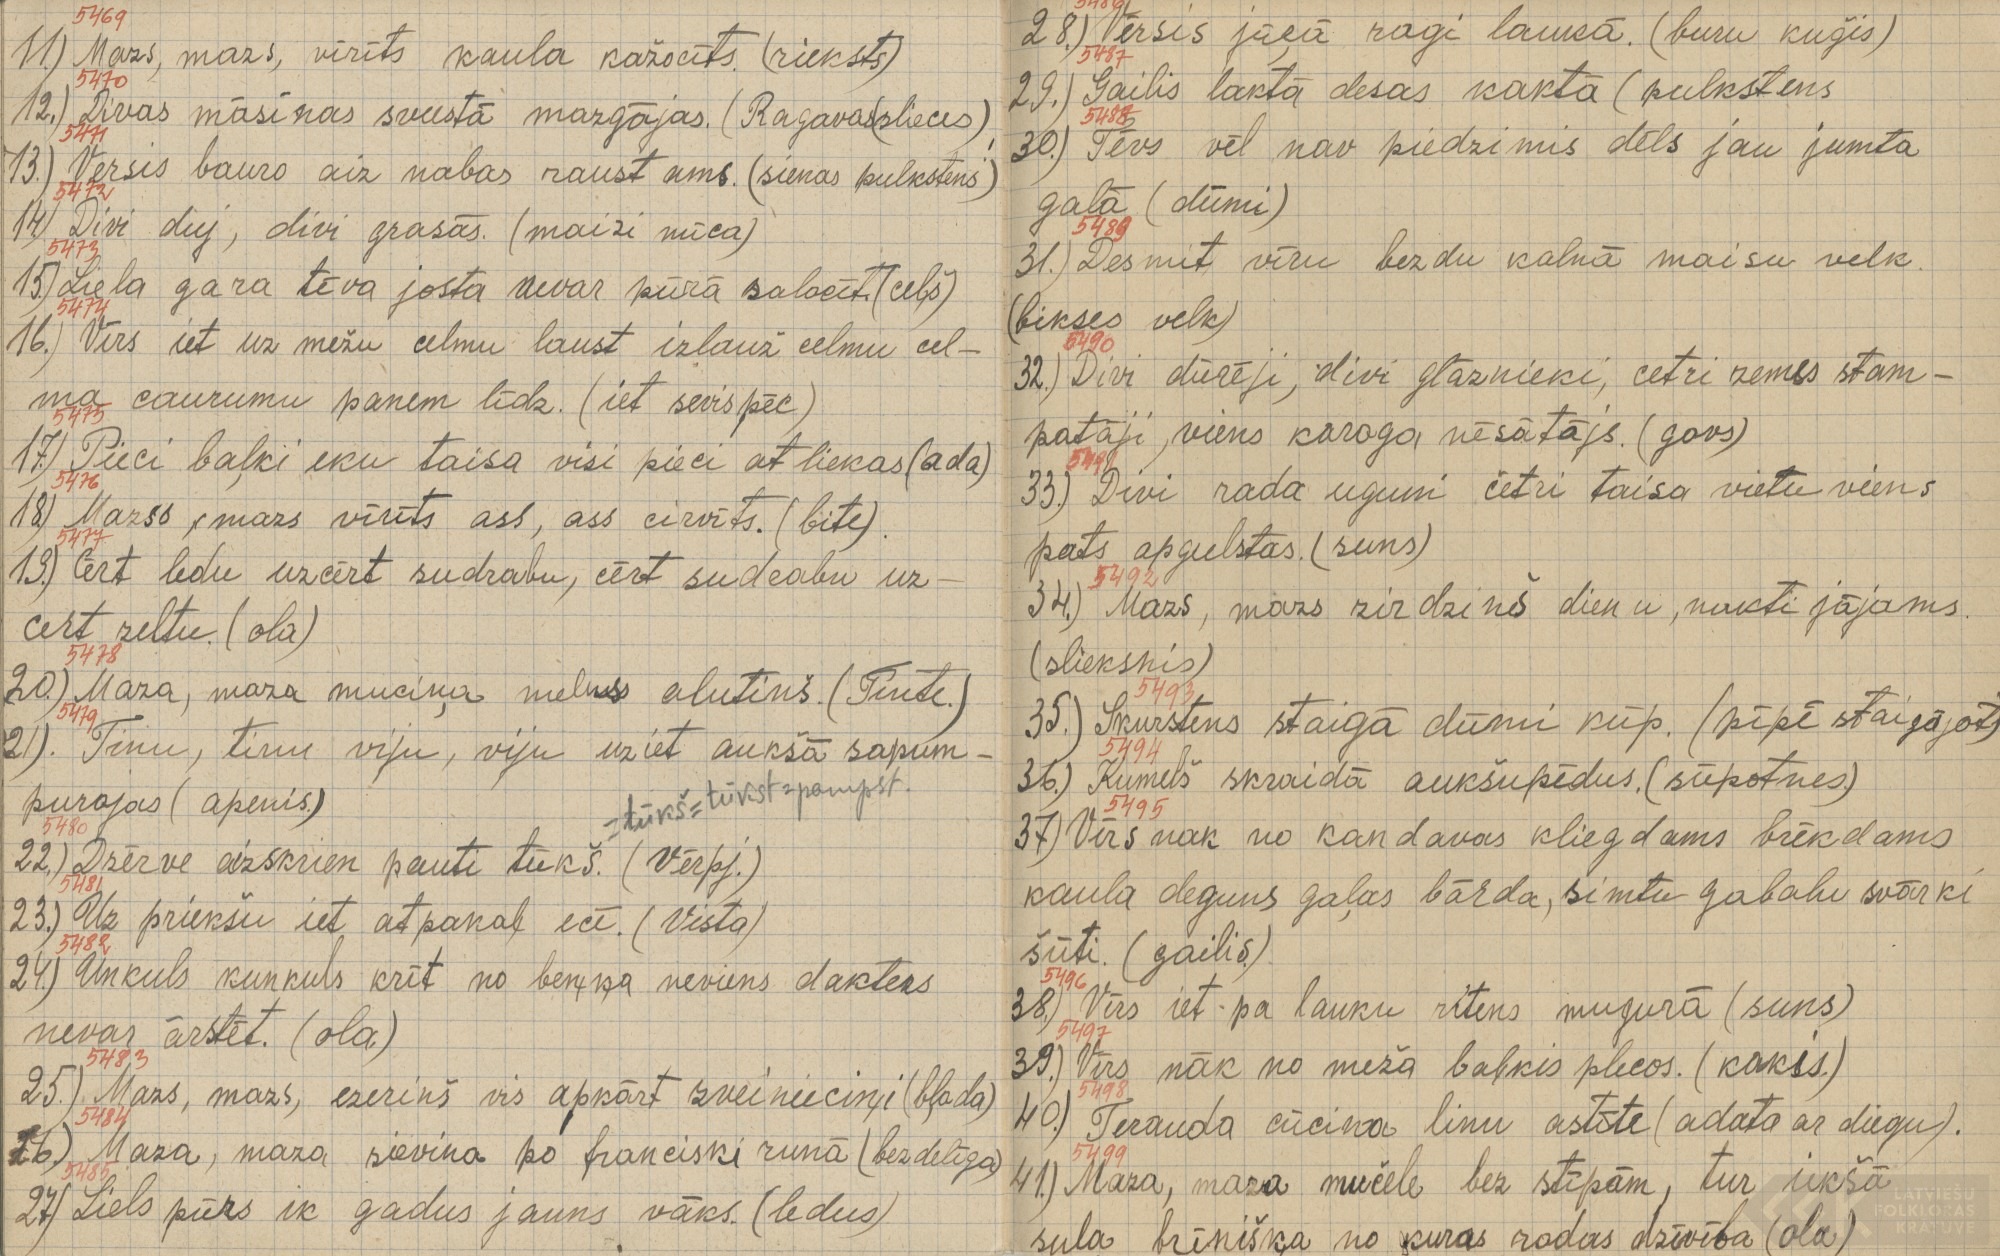 5469
11.) Mazs, mazs, vīrīts kaula kažocīts. (rieksts)
5470
12.) Divas māsiņas sviestā mazgājas. (Ragavas(slieces)
5471
13.) Vērsis bauro aiz nabas raustams. (sienas pulkstens)
5472
14) Divi diej, divi grasās. (maizi mīca)
5473
15) Liela gara tēva josta nevar pūrā salocīt. (ceļš)
5474
16.) Vīrs iet uz mežu celmu laust izlauž celmu cel-
ma caurumu paņem līdz. (iet sevis pēc)
5475
17.) Pieci baļķi eku taisa visi pieci at liekas (ada)
5476
18) Mazss, mazs vīrīts ass, ass cirvīts. (bite).
5477
19.) Cērt ledu uzcērt sudrabu, cērt sudrabu uz-
cert zeltu. (ola)
5478
20.) Maza, maza muciņa melnss alutiņš. (Tinte.)
5479
21). Tinu, tinu viju, viju uziet aukšā sapum-
purojas (apenis.)
=tūkš=tūkst=pampst.
5480
22.) Dzērve aizskrien pauti tūkš. (Vērpj.)
5481
23.) Uz priekšu iet atpakaļ ecē. (Vista)
5482
24.) Unkuls kunkuls krīt no beņķa neviens dakters
nevar ārstēt. (ola)
5483
25.) Mazs, mazs, ezeriņš vis apkārt zveinieciņi (bļoda)
5484
26.) Maza, maza sieviņa pa franciski runā (bezdelīga)
5485
27) Liels pūrs ik gadus jauns vāks. (ledus)
5486
28.) Vērsis jūŗā ragi laukā. (buru kuģis)
5487
29.) Gailis laktā desas kaktā (pulkstens
5488
30.) Tēvs vēl nav piedzimis dēls jau jumta
galā (dūmi)
5489
31.) Desmit vīru bezdu kalnā maisu velk.
(bikses velk)
5490
32.) Divi dūrēji, divi glaznieki, cetri zemes stam-
patāji, viens karoga nēsātājs. (govs)
5491
33.) Divi rada uguni četri taisa vietu viens
pats apgulstas. (suns)
5492
34.) Mazs, mazs zirdziņš dienu, nakti jājams.
(slieksnis)
5493
35.) Skurstens staigā dūmi kūp. (pīpē staigājot)
5494
36.) Kumeļš skraidā aukšupēdus. (šūpotnes.)
5495
37) Vīrs nāk no kandavas kliegdams brēkdams
kaula deguns gaļas bārda, simtu gabalu svārki
šūti. (gailis.)
5496
38.) Vīrs iet pa lauku ritens mugurā (suns)
5497
39.) Vīrs nāk no meža baļķis plecos. (kakis.)
5498
40.) Terauda cūciņa linu astīte (adata ar diegu).
5499
41.) Maza, maza mučele bez stīpām, tur iekšā
sula brīnišķa no kuras rodas dzīvība (ola)
LATVIEŠU
FOLKLORAS
KRĀTUVE